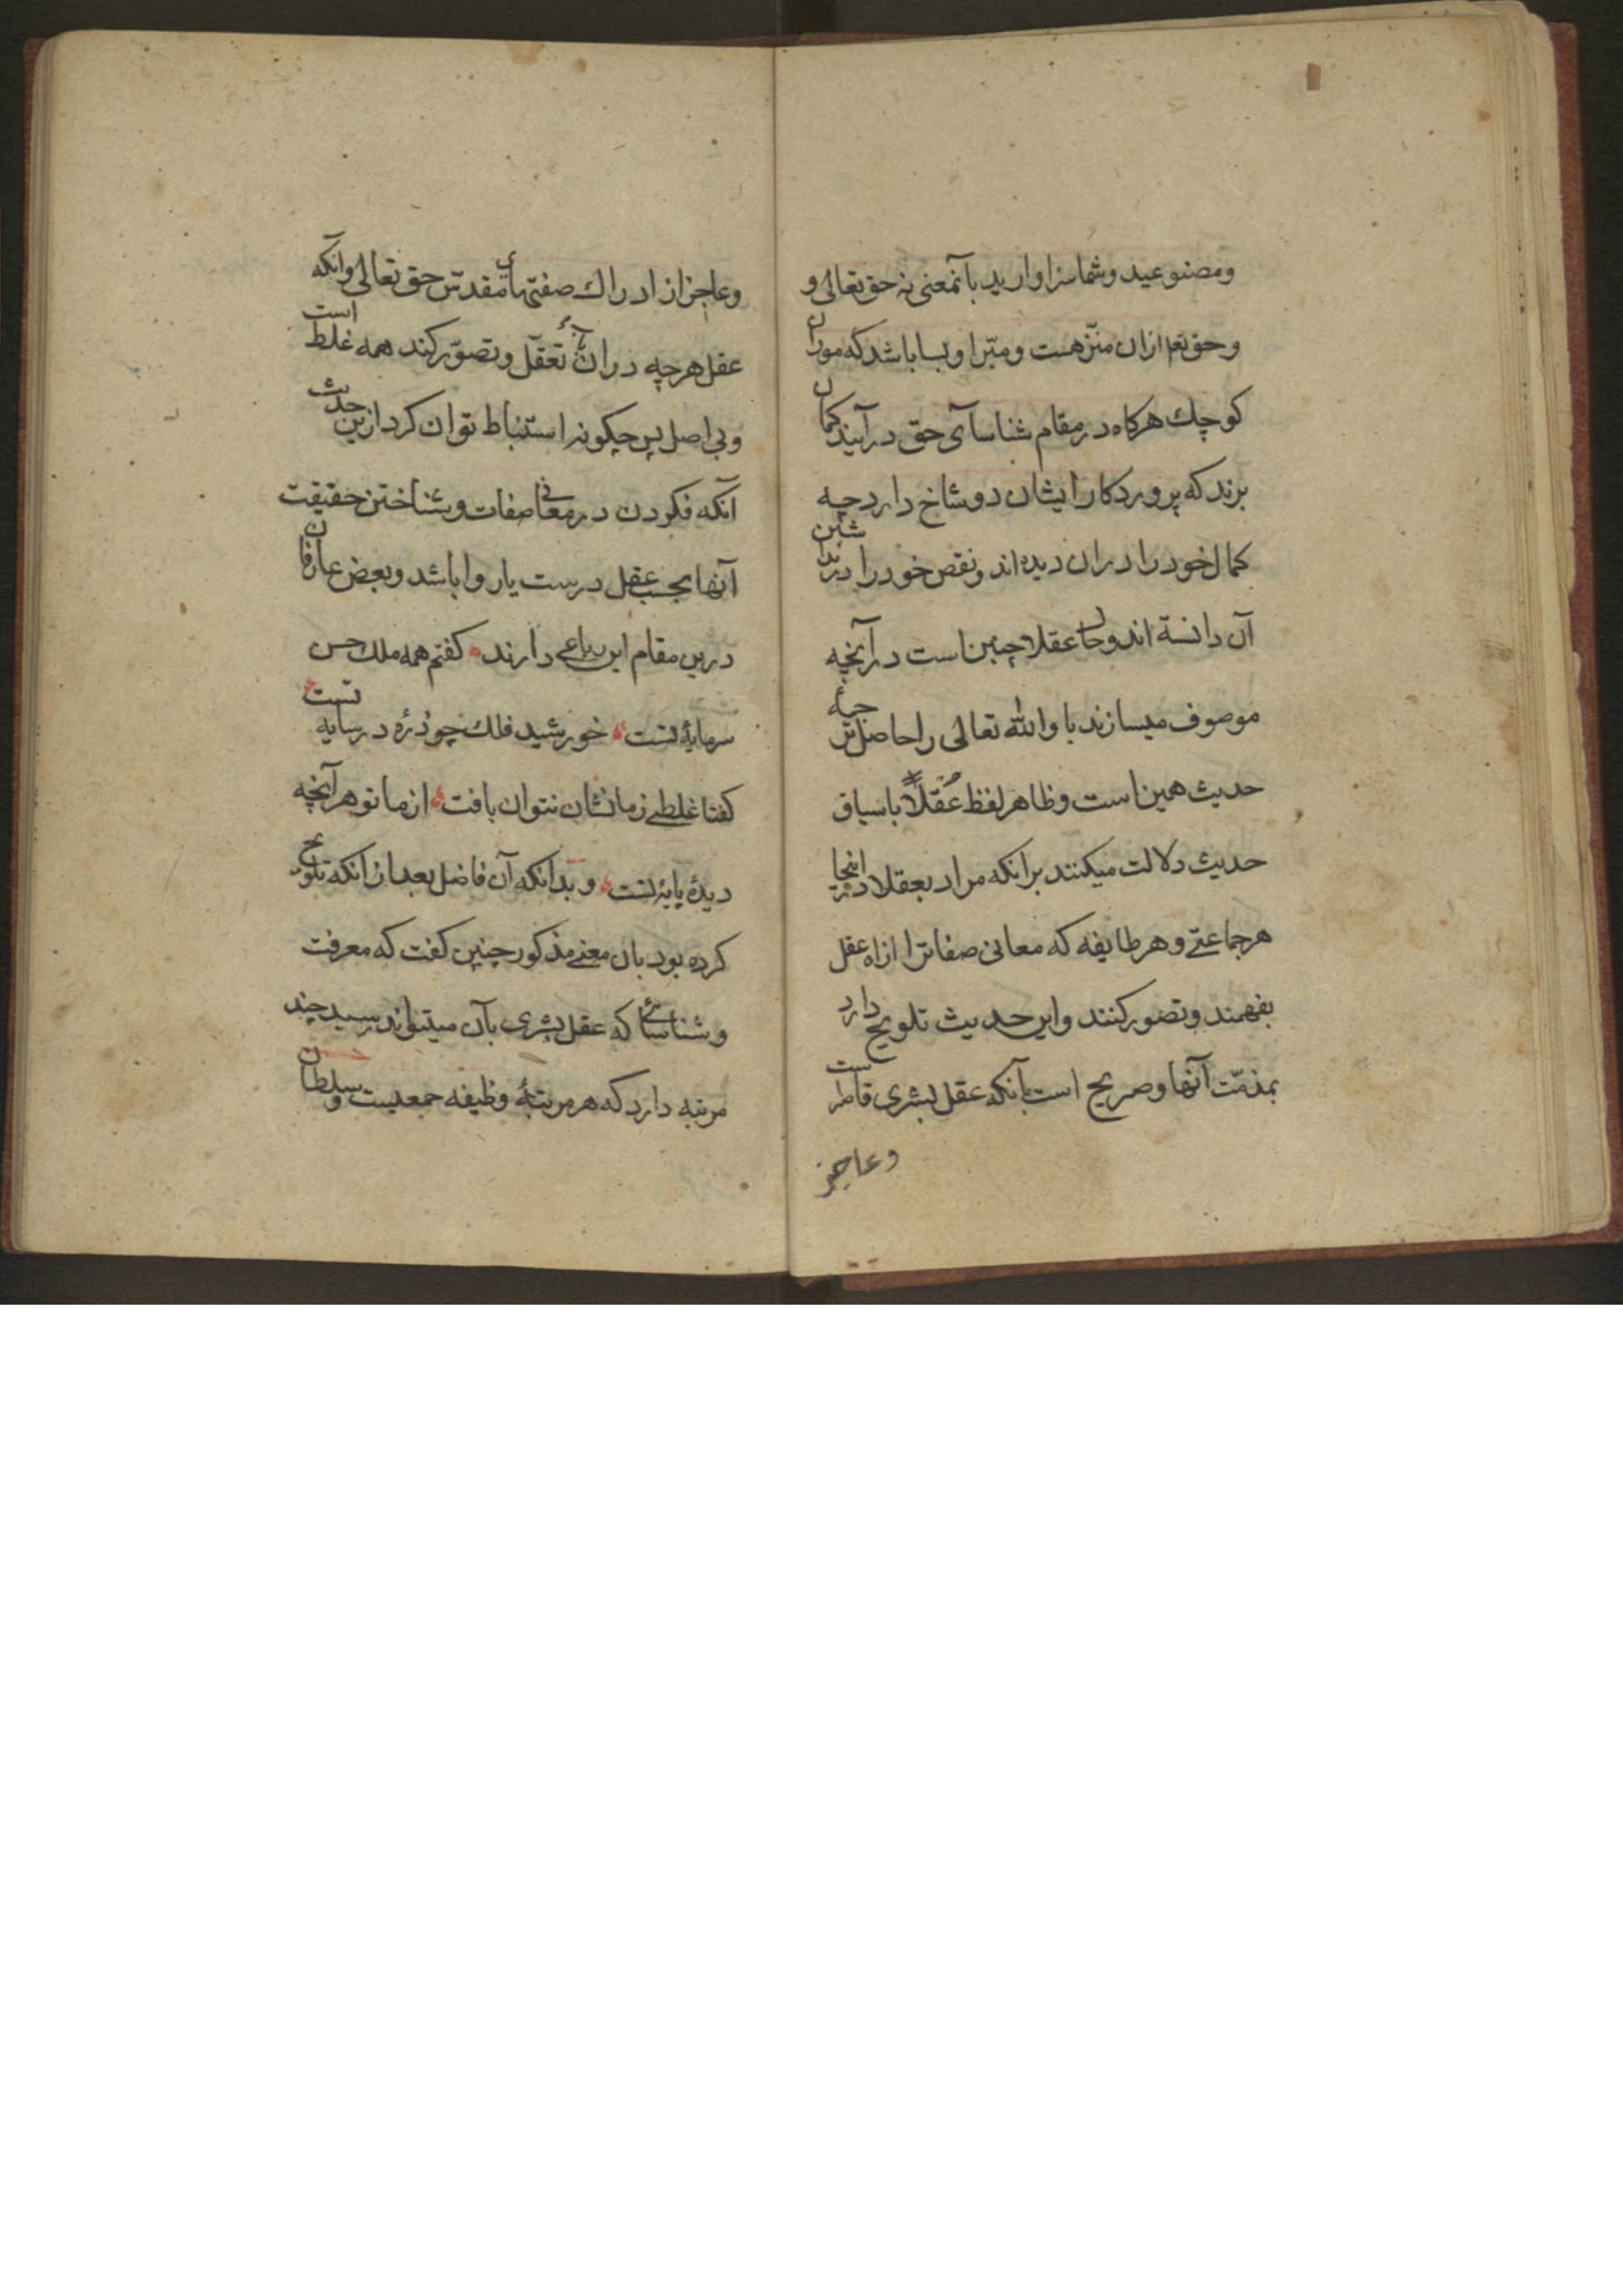 ومصنوعید وشما سزاوارید بآنمعنی نه حق تعالی و
وحق تعم ازان منزّهست ومبّرا وبسا باشد که موران
کوچك هرکاه در مقام شناسآی حق درآیند کمان
برند که پروردکار ایشان دو شاخ دارد چه
کمال خود را دران دیده اند ونقص خود را در نداشتن
آن دانسة اند وحال عقلا چنین است در آنچه
موصوف میسازند باو الله تعالی را حاصل ترجمهٔ
حدیث همین است وظاهر لفظ عُقَلاً با سیاق
حدیث دلالت میکنند برانکه مراد بعقلا در اینجا
هر جماعتی وهر طایفه که معانی صفاترا ازاه عقل
بفهمند وتصور کنند واین حدیث تلویح دارد
بمذمّت آنها وصریح است بآنکه عقل بشری قاصر است
وعاجز
وعاجز از ادراك صفتهای مقدّس حق تعالی وآنکه
عقل هرچه دران تعقّل وتصوّر کند همه غلط است
وبی اصل پس چکونه استنباط توان کرد ازین حدیث
آنکه فکر کردن در معانی صفات وشناختن حقیقت
آنها بحسب عقل درست یا روا باشد وبعض عارفان
درین مقام این رباعی دارند کفتم همه ملك حسن
سرمایهٔ تست خورشید فلك چو ذرّه در سایه تست
کفتا غلطی زما نشان نتوان یافت از ما تو هر آنچه
دیدهٔ پایهٔ تست وبدانکه آن فاضل بعد ازانکه تلویح
کرده بود بان معنی مذکور چنین کفت که معرفت
وشناسائی که عقل بشری بآن میتواند رسید چند
مرتبه دارد که هر مرتبهٔ وظیفه جمعیست وسلطان